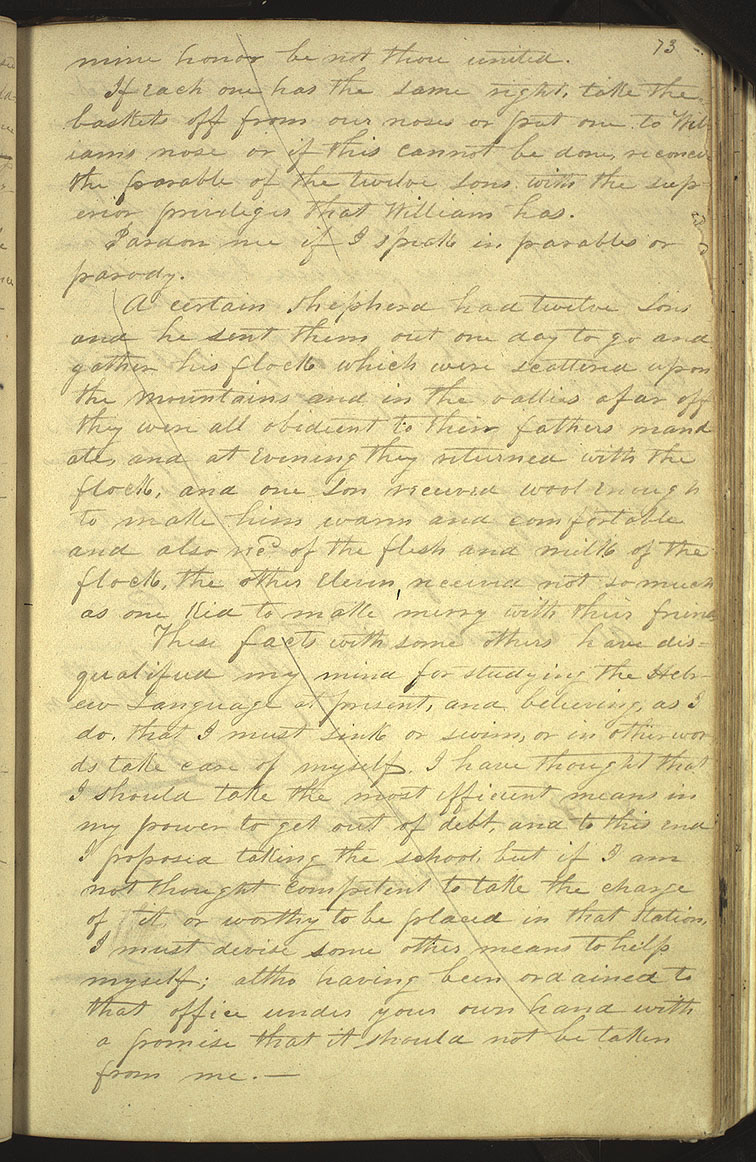 73
mine honor be not thou united.
If each one has the same right, take the
baskets off from our noses or put one to Will-
iams nose or if this cannot be done, reconcile
the parable of the twelve sons with the sup-
erior privileges that William has.
Pardon me if I speak in parables or
parody.
A certain shepherd had twelve sons
and he sent them out one day to go and
gather his flock which were scattered upon
the mountains and in the vallies afar off
they were all obidient to their fathers mand
ate, and at evening they returned with the
flock, and one son received wool enough
to make him warm and comfortable
and also recd of the flesh and milk of the
flock, the other eleven received not so much
as one kid to make merry with their friends
These facts with some others have dis-
qualified my mind for studying the Heb-
ew Language at present, and believing, as I
do, that I must sink or swim, or in other wor
ds take care of myself, I have thought that
I should take the most efficient means in
my power to get out of debt, and to this end
I proposed taking the school, but if I am
not thought competent to take the charge
of it, or worthy to be placed in that station,
I must devise some other means to help
myself; altho having been ordained to
that office under your own hand with
a promise that it should not be taken
from me. —